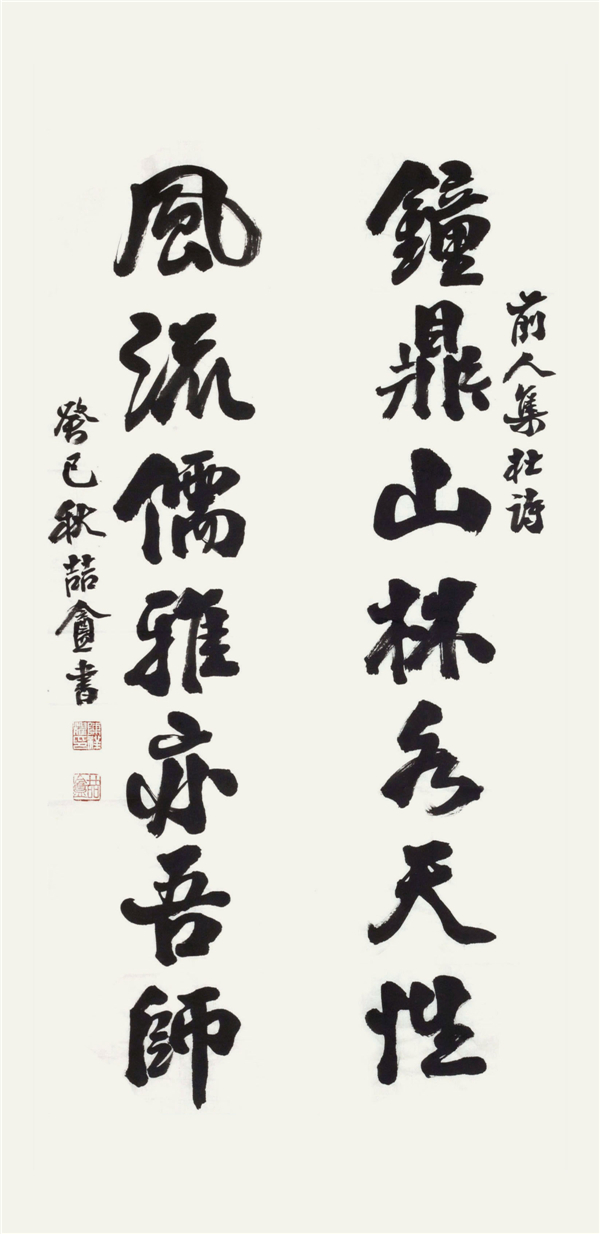 前人集杜詩
鐘鼎山林各天性
風流儒雅亦吾師
癸巳秋喆盦書